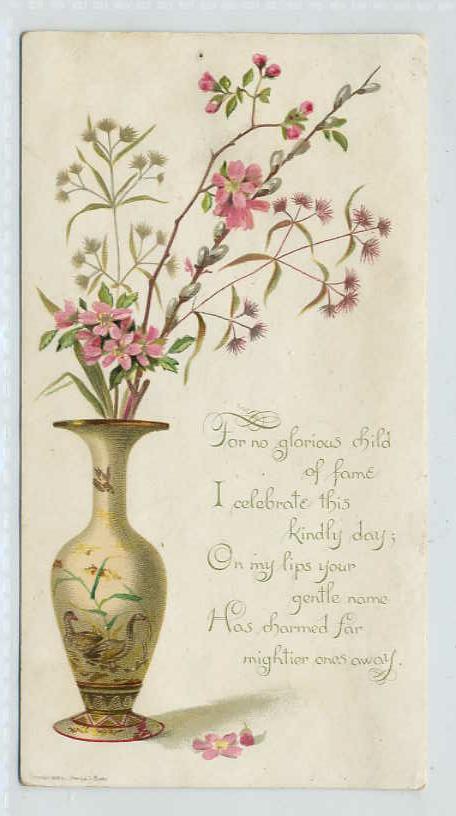 For no glorious child
of fame
I celebrate this
kindly day;
On my lips your
gentle name
Has charmed far
mightier ones away.